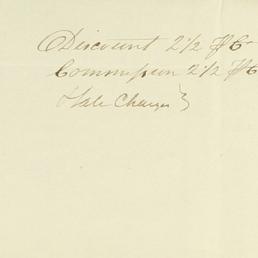 Discount 2 1/2 ₱ C
Commission 2 1/2 ₱ C
Sale Charges }